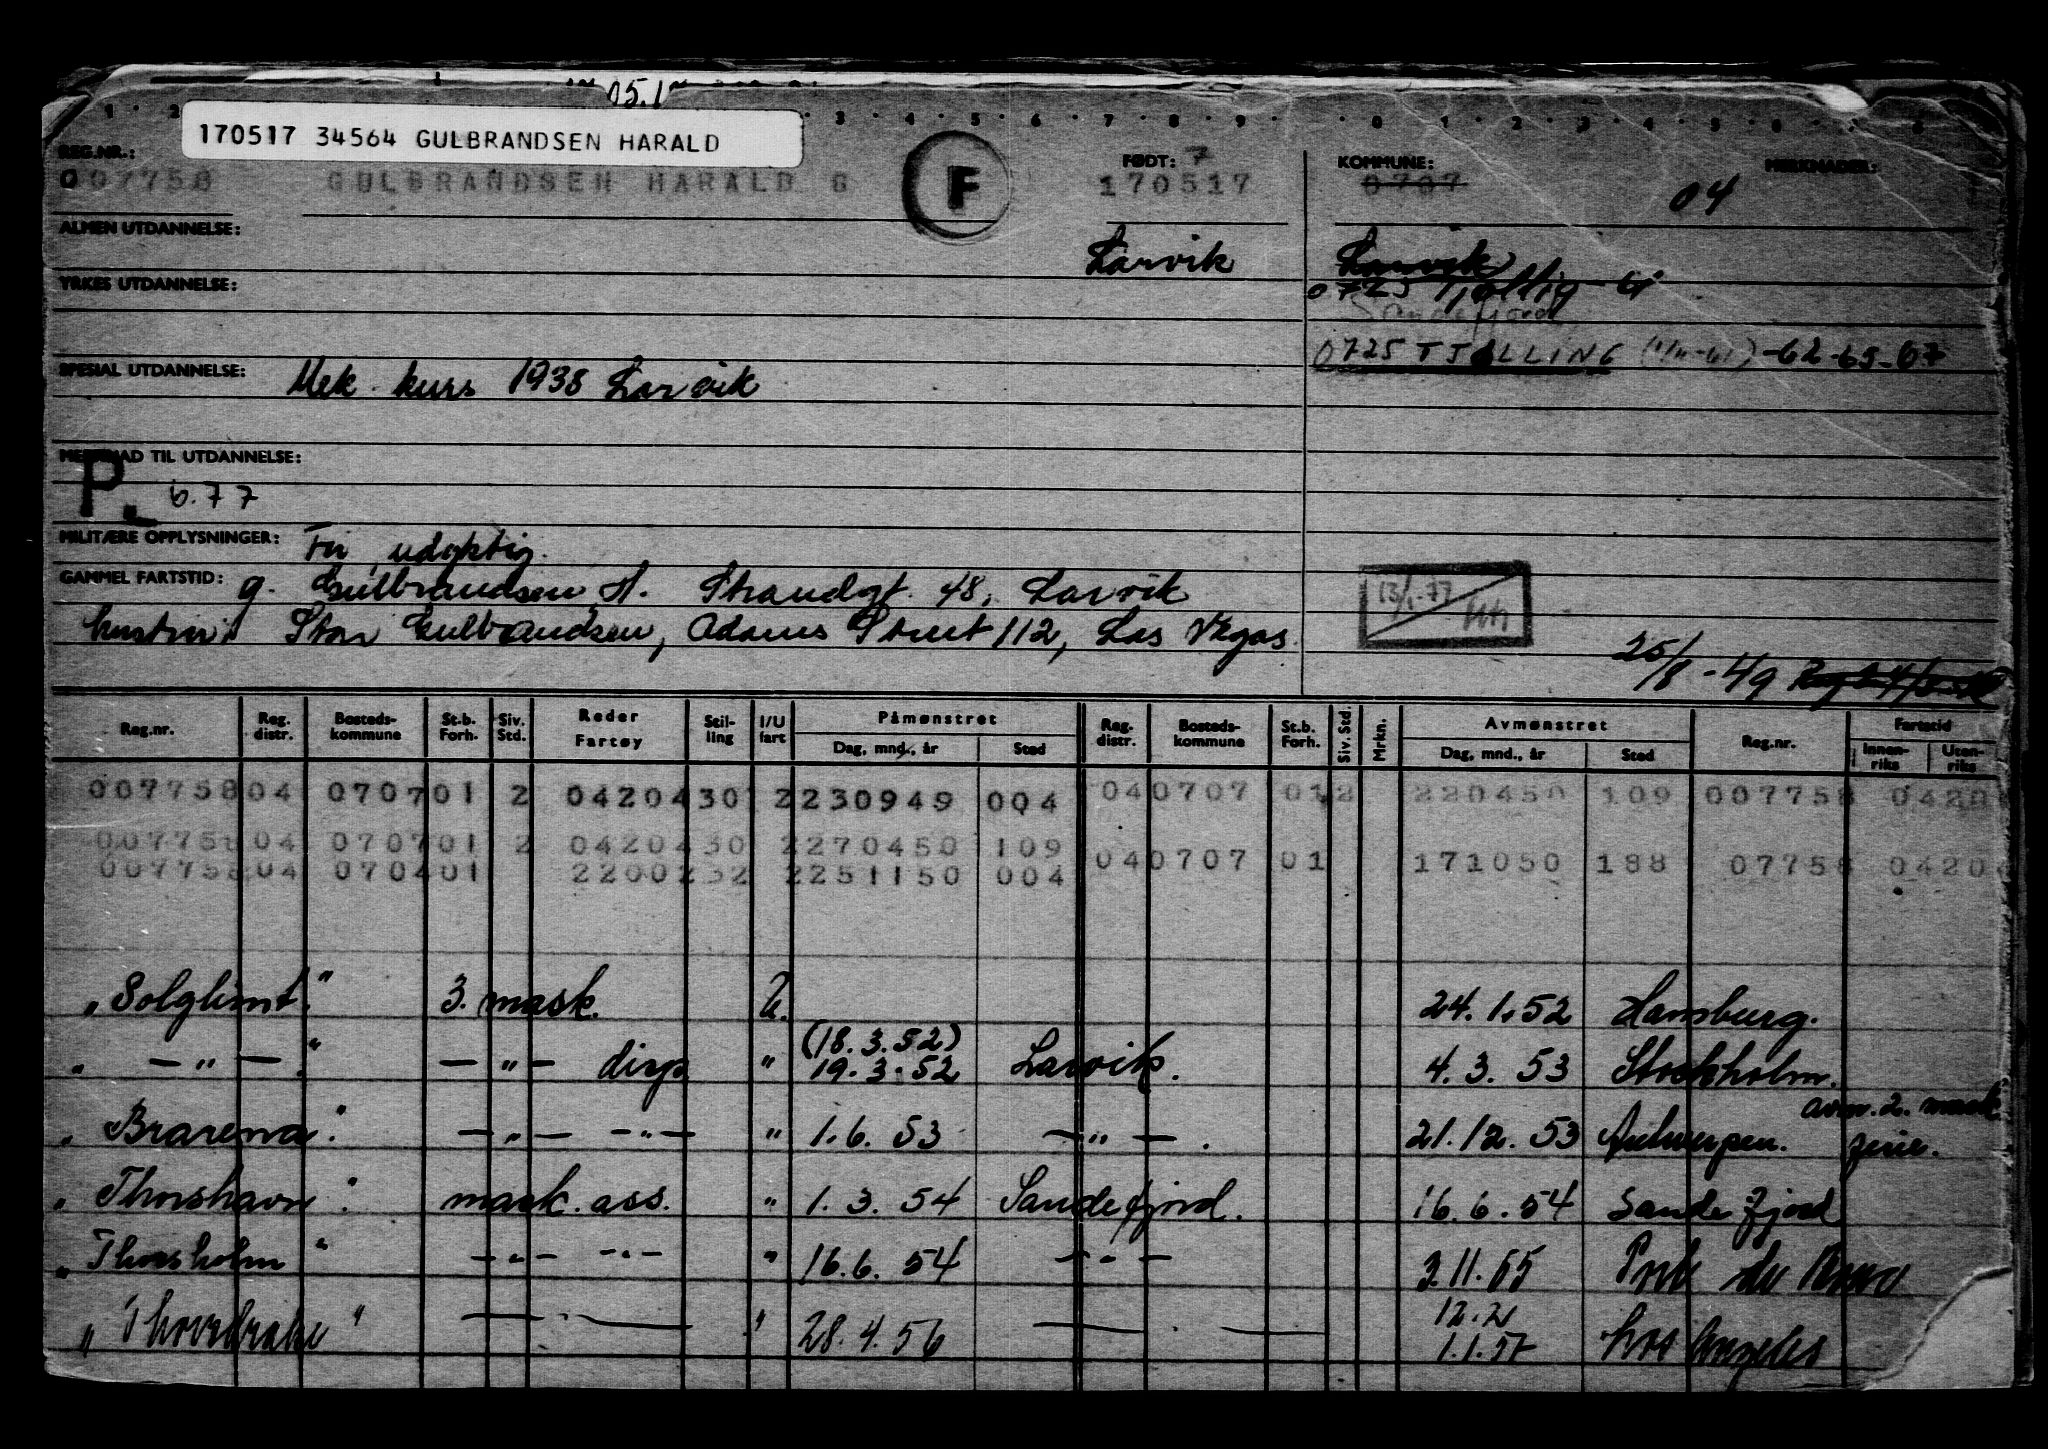 05.1
170517 34564 GULBRANDSEN HARALD
REG.NR.: FØDT: 7 KOMMUNE: MERKNADER:
007758 GULBRANDSEN HARALD G F 170517 0707 04
ALMEN UTDANNELSE: Larvik Larvik
YRKES UTDANNELSE: 0725 Tjølling
Sandefjord
0725 TJØLLING -62-65-67
SPESIAL UTDANNELSE: Mek. kurs 1938 Larvik
MERKNAD TIL UTDANNELSE:
P. 6.77
MILITÆRE OPPLYSNINGER: Fri, udyktig.
GAMMEL FARTSTID: g. Gulbrandsen H. Strandgt. 48, Larvik
13/1-77
hustru: Gulbrandsen, Adams Street 112, Las Vegas.
25/8-49
Reg.nr. Reg. distr. Bosteds-kommune St.b. Forh. Siv. Std. Reder Fartøy Stil-ling I/U fart Påmønstret Dag, mnd., år Sted Reg. distr. Bosteds-kommune St.b. Forh. Siv. Std. Mrkn. Avmønstret Dag, mnd., år Sted Reg.nr. Fartstid Innen-riks Uten-riks
007758 04 0707 01 2 0420430 2 230949 004 04 0707 01 2 220450 109 007758 0420
007758 04 0707 01 2 0420430 2 270450 109
04 0707 01 171050 188 07758 0420
007758 04 0704 01 2200232 2 251150 004
"Solglimt." 3. mask. U. 24.1.52 Hamburg.
(18.3.52)
" — " — " — " — disp " 19.3.52 Larvik. 4.3.53 Stockholm.
avm. 2. mask
"Brarena". — " — — " — " 1.6.53 — " — . 21.12.53 Antwerpen. ferie.
"Thorshavn" mask. ass. " 1.3.54 Sandefjord. 16.6.54 Sandefjord
"Thorsholm" — " — — " — " 16.6.54 — " — 3.11.55
12.2
"Thorsdrake" — — " 28.4.56 — — 1.1.57 Los Angeles